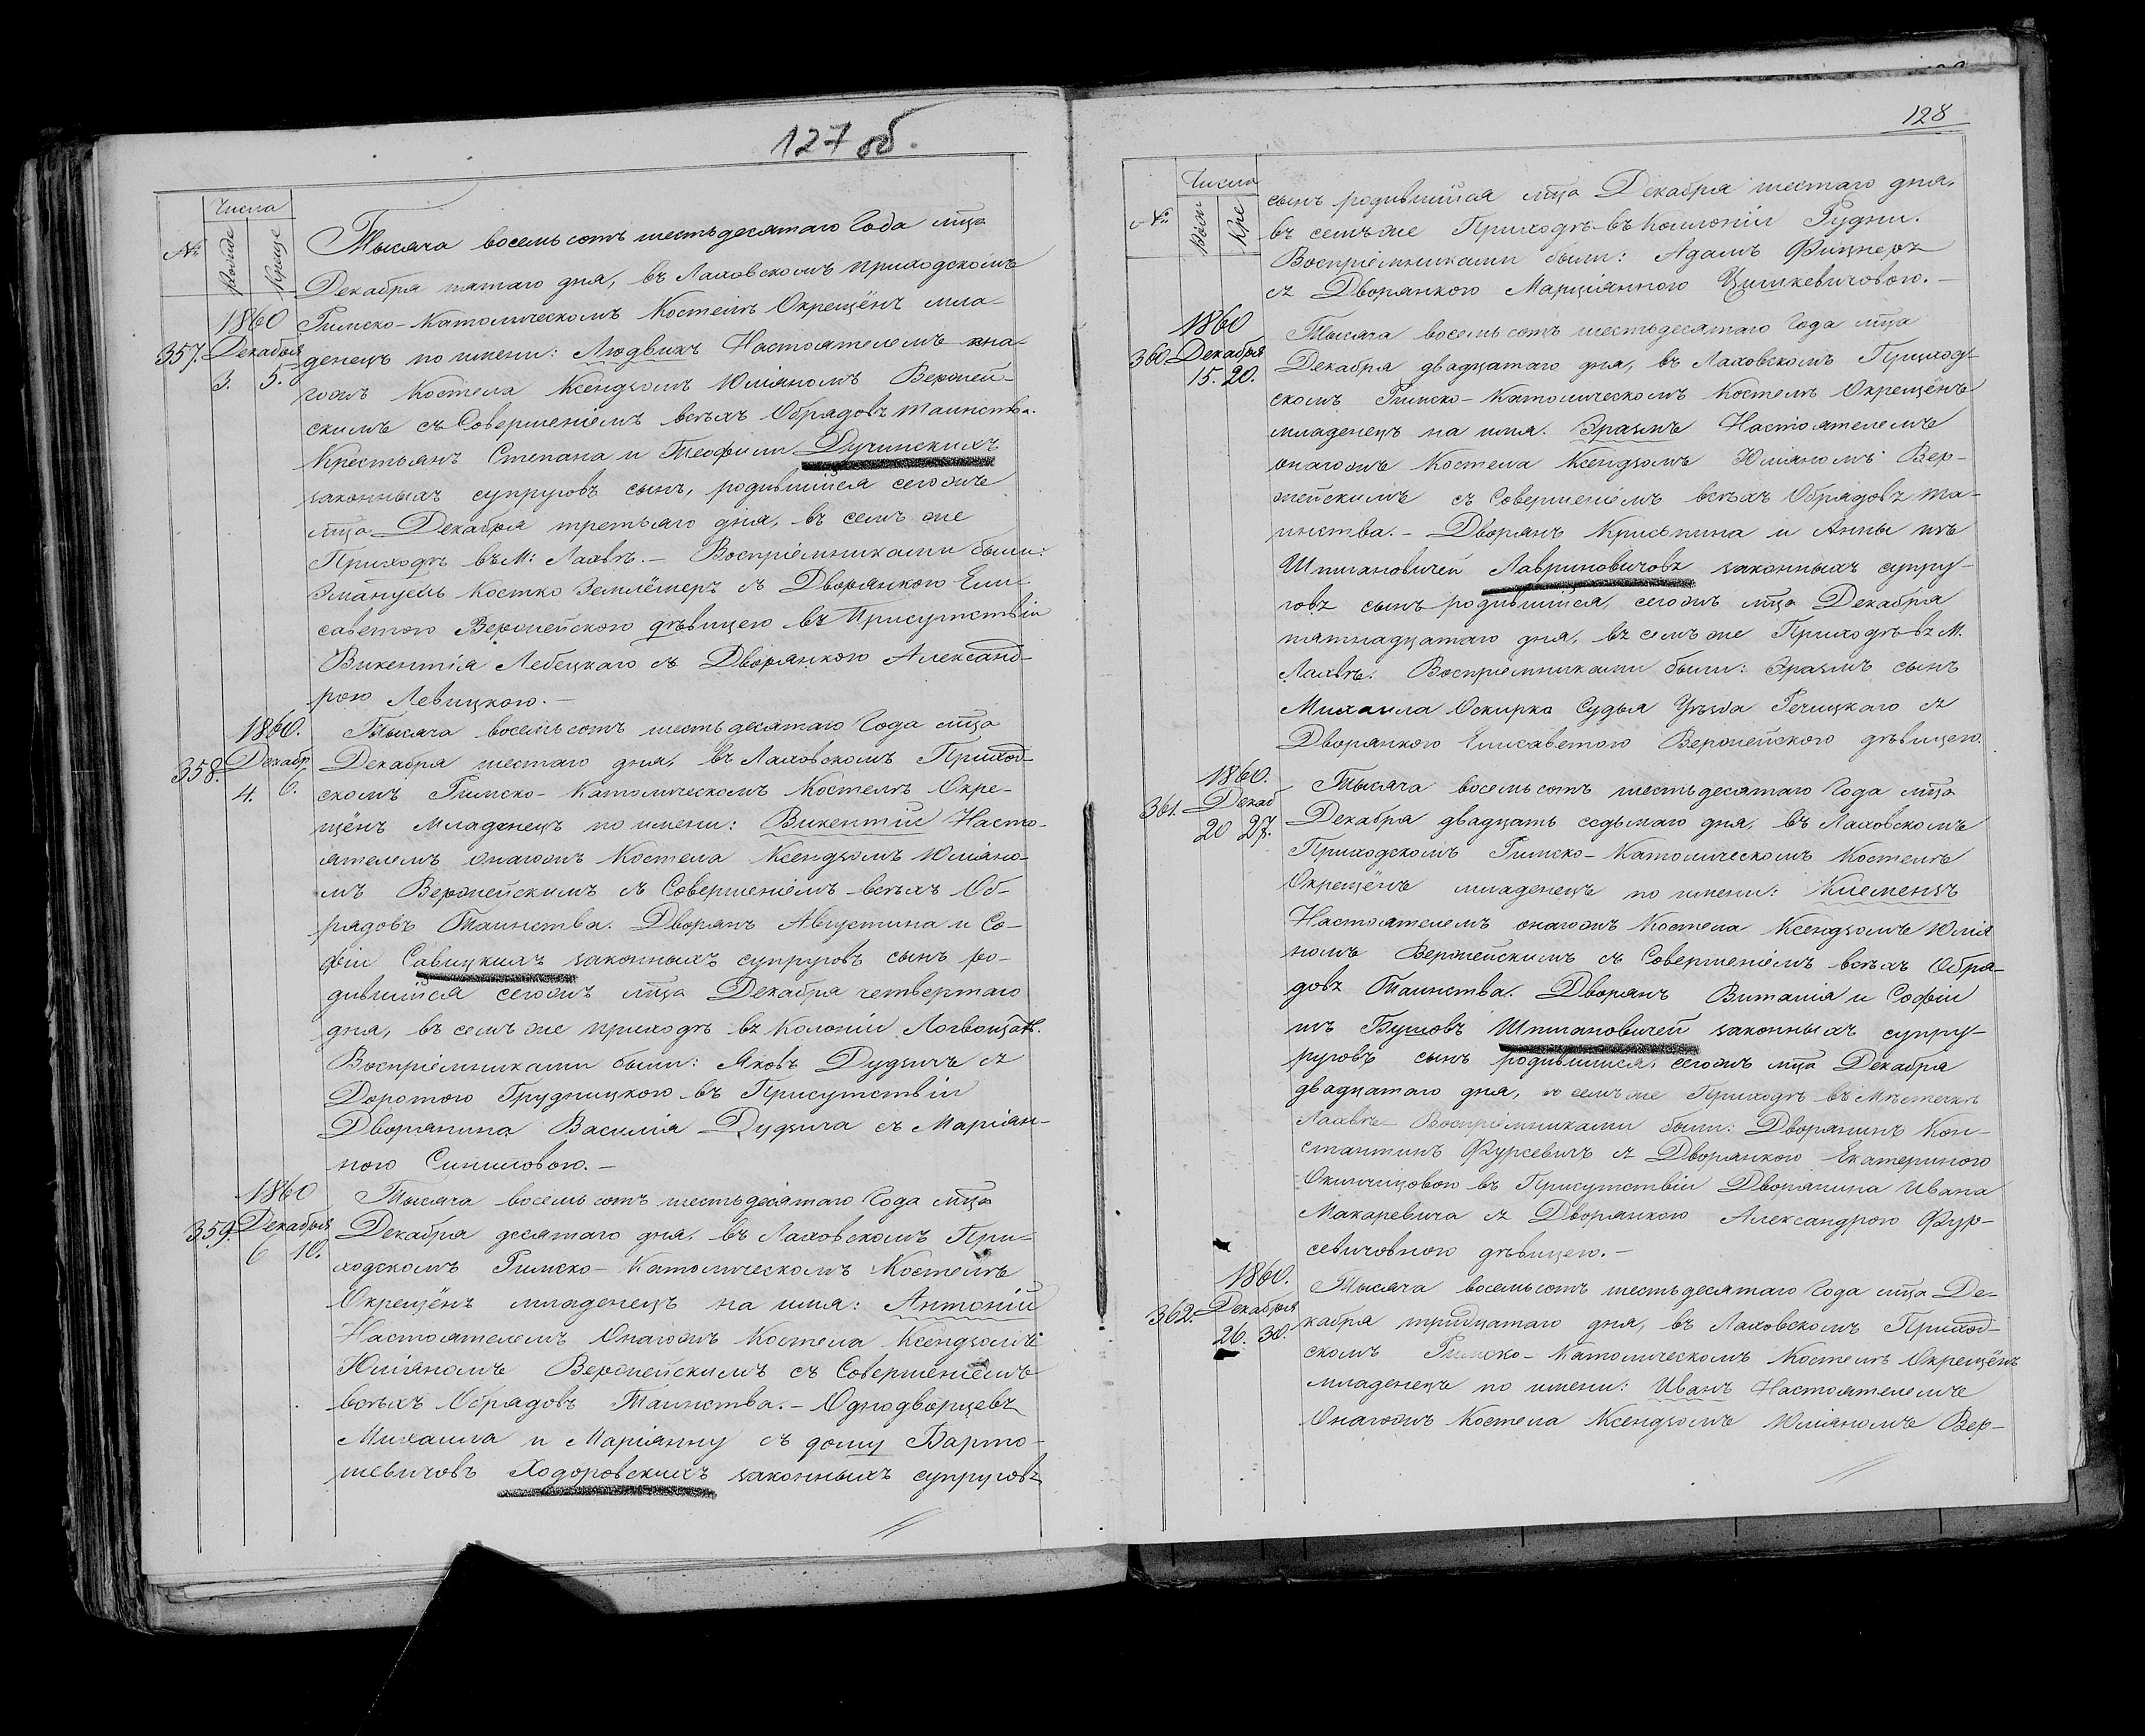 127 об.
Числа
№ Рожде Креще
Тысяча восемьсотъ шестьдесятаго Года мца
Декабря пятаго дня, въ Лаховскомъ приходскомъ
1860 Римско-Католическомъ Костелѣ Окрещёнъ мла-
357. Декабря денецъ по имени: Людвикъ Настоятелемъ она-
3. 5. гожъ Костела Ксендзомъ Юліяномъ Вержей-
скимъ съ Совершеніемъ всѣхъ Обрядовъ таинства.
Крестьянъ Степана и Теофили Дучинскихъ
законныхъ супруговъ сынъ, родившійся сегожъ
мца Декабря третьяго дня, въ семъ же
Приходѣ въ М: Лахвѣ.- Воспріемниками были:
Эмануель Костко Землёмеръ съ Дворянкою Ели-
саветою Вержейскою дѣвицею въ Присутствіи
Викентія Лебецкаго съ Дворянкою Александ-
рою Левицкою.-
1860. Тысяча восемьсотъ шестьдесятаго Года мца
358. Декабр Декабря шестаго дня, въ Лаховскомъ Приход-
4. 6. скомъ Римско-Католическомъ Костелѣ Окре-
щёнъ младенецъ по имени: Викентій Насто-
ятелемъ онагожъ Костела Ксендзомъ Юліяно-
мъ Вержейскимъ съ Совершеніемъ всѣхъ Об-
рядовъ Таинства. Дворянъ Августина и Со-
фіи Савицкихъ законныхъ супруговъ сынъ ро-
дившійся сегожъ мца Декабря четвертаго
дня, въ семъ же приходѣ въ Колоніи Логвощахъ.
Воспріемниками были: Яковъ Дудзичъ съ
Доротою Грудницкою въ Присутствіи
Дворянина Василія Дудзича съ Маріян-
ною Синиловою.-
1860 Тысяча восемьсотъ шестьдесятаго Года мца
359. Декабря Декабря десятаго дня, въ Лаховскомъ При-
6 10. ходскомъ Римско-Католическомъ Костелѣ
Окрещёнъ младенецъ на имя: Антоній
Настоятелемъ Онагожъ Костела Ксендзомъ
Юліяномъ Вержейскимъ съ Совершеніемъ
всѣхъ Обрядовъ Таинства.- Однодворцевъ
Михаила и Маріянну съ дому Барто-
шевичовъ Ходоровскихъ законныхъ супруговъ
128
Числа
№ Кре
сынъ родившійся мца Декабря шестаго дня,
въ семъ же Приходѣ въ Колоніи Рудни.
Воспріемниками были: Адамъ Фицнеръ
съ Дворянкою Марціянною Цишкевичовою.-
1860 Тысяча восемьсотъ шестьдесятаго Года мца
360 Декабря Декабря двадцатаго дня, въ Лаховскомъ Приход-
15. 20. скомъ Римско-Католическомъ Костелѣ Окрещёнъ
младенецъ на имя. Эразмъ Настоятелемъ
онагожъ Костела Ксендзомъ Юліяномъ Вер-
жейскимъ съ Совершеніемъ всѣхъ Обрядовъ та-
инства.- Дворянъ Криспина и Анны изъ
Шпилановичей Лавриновичовъ законныхъ супру-
говъ сынъ родившійся, сегожъ мца Декабря
пятнадцатаго дня, въ семъ же Приходѣ въ М.
Лахвѣ. Воспріемниками были: Эразмъ сынъ
Михаила Оскирко Судья Уѣзда Речицкаго съ
Дворянкою Елисаветою Вержейскою дѣвицею.
1860. Тысяча восемьсотъ шестьдесятаго Года мца
361. Декаб Декабря двадцать седьмаго дня, въ Лаховскомъ
20 27. Приходскомъ Римско-Католическомъ Костелѣ
Окрещёнъ младенецъ по имени: Клеменсъ
Настоятелемъ онагожъ Костела Ксендзомъ Юлія
номъ Вержейскимъ съ Совершеніемъ всѣхъ Обря-
довъ Таинства. Дворянъ Виталія и Софіи
изъ Шпилановичей законныхъ супру-
руговъ сынъ родившійся, сегожъ мца Декабря
двадцатаго дня, въ семъ же Приходѣ въ Мѣстечкѣ
Лахвѣ Воспріемниками были: Дворянинъ Кон-
стантинъ Фурсевичъ съ Дворянкою Екатериною
Окинчицовою въ Присутствіи Дворянина Ивана
Макаревича съ Дворянкою Александрою Фур-
севичовною дѣвицею.-
1860. Тысяча восемьсотъ шестьдесятаго Года мца Де-
362. Декабря кабря тридцатаго дня, въ Лаховскомъ Приход-
26. 30. скомъ Римско-Католическомъ Костелѣ Окрещёнъ
младенецъ по имени: Иванъ Настоятелемъ
Онагожъ Костела Ксендзомъ Юліяномъ Вер-